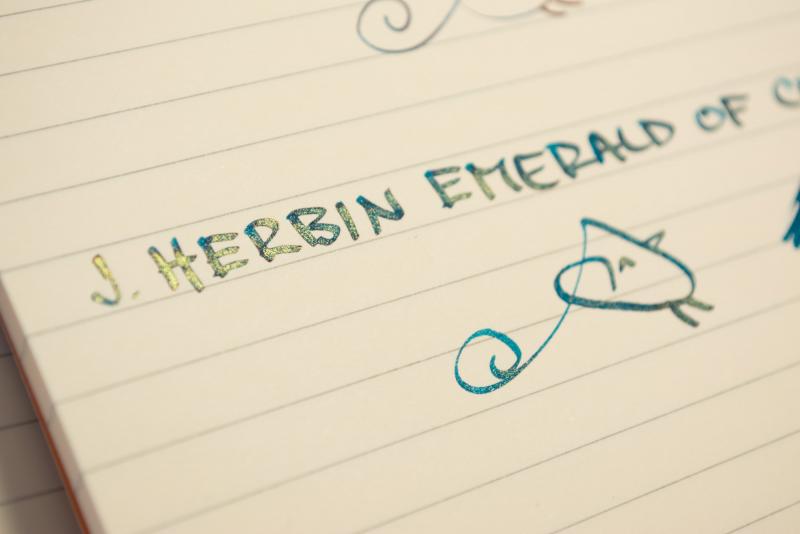 J. HERBIN EMERALD OF C